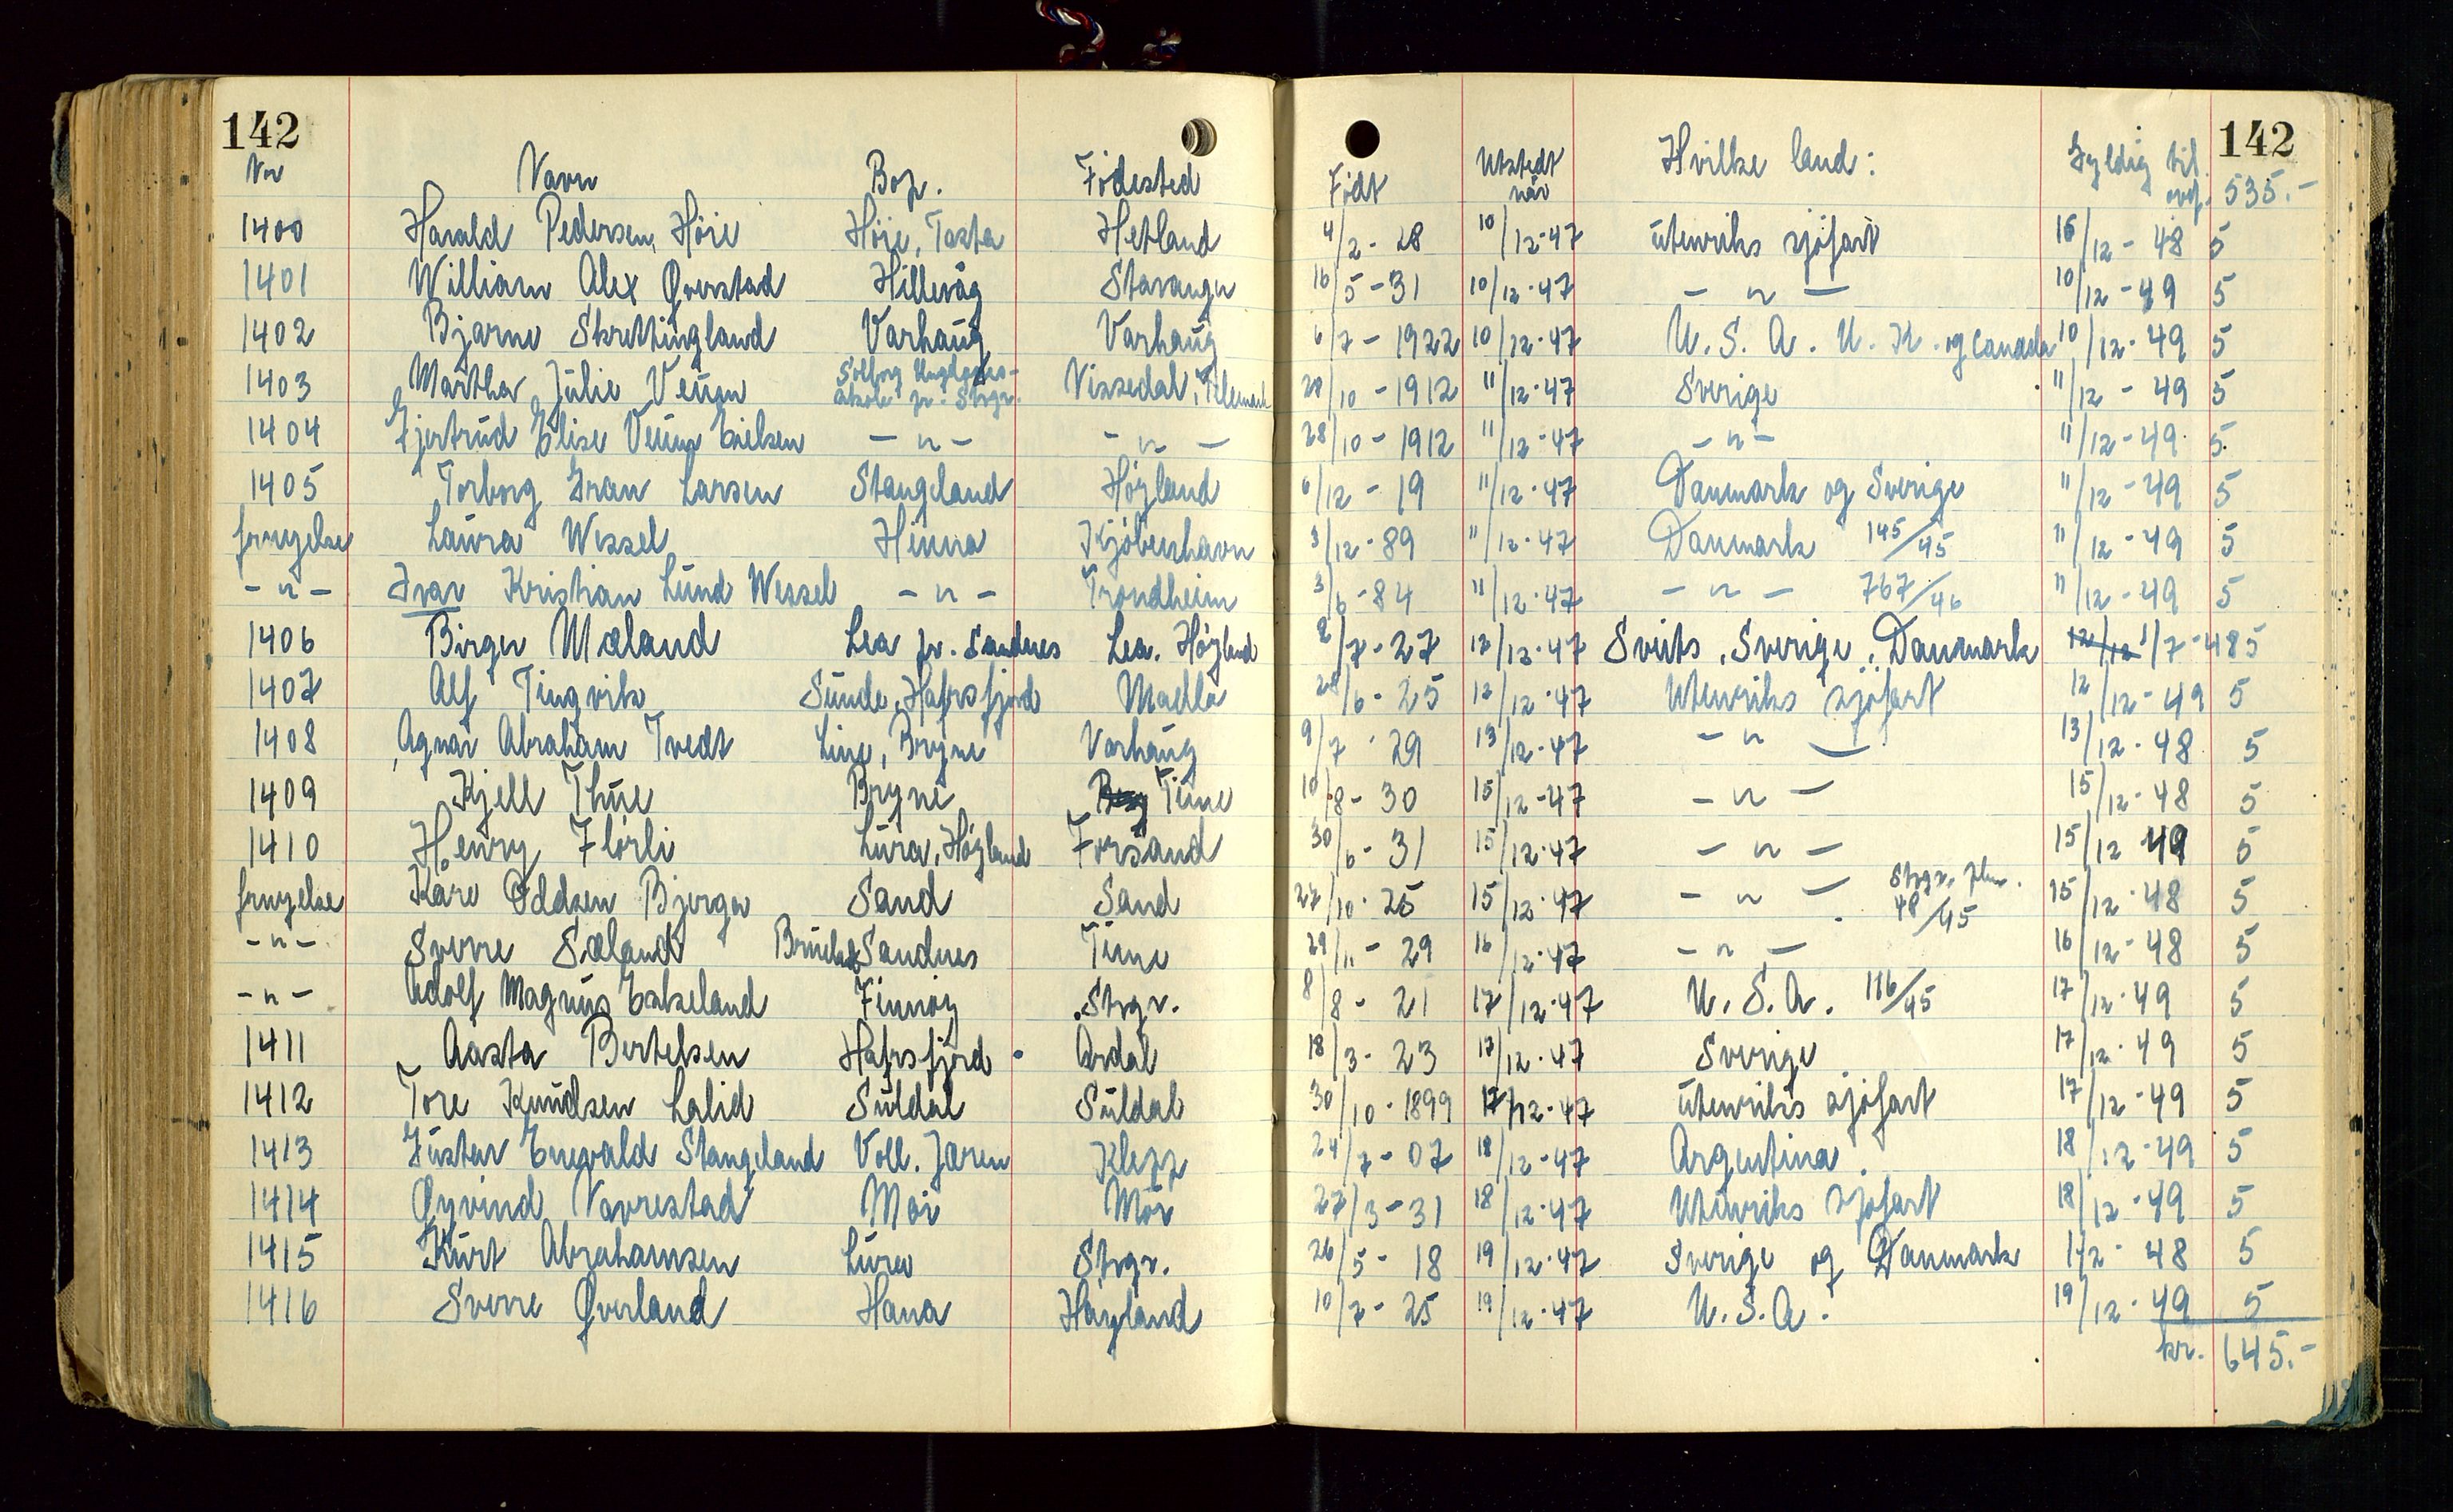 142 142
Nr Navn Bop. Fødested Født Utstedt når Hvilke land: Gyldig til ovf. 535.-
1400 Harald Pedersen Höie Höie, Tasta Hetland 4/2-28 10/12-47 utenriks sjöfart 16/12-48 5
1401 William Alex Qverstad Hillevåg Stavanger 16/5-31 10/12-47 -"- 10/12-49 5
1402 Bjarne Skrettingland Varhaug Varhaug 6/7-1922 10/12-47 U.S.A. U.K. og Canada 10/12-49 5
1403 Martha Julie Veum Solborg Ungdomsskole pr. Stvgr. Vissedal, Telemark 28/10-1912 11/12-47 Sverige 11/12-49 5
1404 Gjertrud Elise Veum Eielsen -"- -"- 28/10-1912 11/12-47 -"- 11/12-49 5
1405 Torborg Gran Larsen Stangeland Höyland 6/12-19 11/12-47 Danmark og Sverige 11/12-49 5
fornyelse Laura Wessel Hinna Kjöbenhavn 3/12-89 11/12-47 Danmark 145/45 11/12-49 5
-"- Ivar Kristian Lund Wessel -"- Trondheim 3/6-84 11/12-47 -"- 767/46 11/12-49 5
1406 Birger Mæland Lea pr. Sandnes Lea. Höyland 2/7-27 12/12-47 Sveits, Sverige, Danmark 12/12 1/7-48 5
1407 Alf Tingvik Sunde, Hafrsfjord Madla 28/6-25 12/12-47 Utenriks sjöfart 12/12-49 5
1408 Agnar Abraham Tvedt Line, Bryne Varhaug 9/7-29 13/12-47 -"- 13/12-48 5
1409 Kjell Thue Bryne Bry Time 10/8-30 15/12-47 -"- 15/12-48 5
1410 Henry Flörli Lura, Höyland Forsand 30/6-31 15/12-47 -"- 15/12 49 5
fornyelse Kåre Oddsen Bjerga Sand Sand 27/10-25 15/12-47 -"- Stvgr. 48/45 15/12-48 5
-"- Sverre Sæland Sandnes Time 29/11-29 16/12-47 -"- 16/12-48 5
-"- Adolf Magnus Eskeland Finnöy Stvgr. 8/8-21 17/12-47 U.S.A. 116/45 17/12-49 5
1411 Aasta Bertelsen Hafrsfjord Årdal 18/3-23 17/12-47 Sverige 17/12-49 5
1412 Tore Knudsen Lalid Suldal Suldal 30/10-1899 17/12-47 utenriks sjöfart 17/12-49 5
1413 Gustav Enevald Stangeland Voll. Jæren Klepp 24/7-07 18/12-47 Argentina. 18/12-49 5
1414 Øyvind Vavrestad Moi Moi 27/3-31 18/12-47 Utenriks sjöfart 18/12-49 5
1415 Kurt Abrahamsen Lura Stvgr. 26/5-18 19/12-47 Sverige og Danmark 1/2-48 5
1416 Sverre Qverland Hana Höyland 10/7-25 19/12-47 U.S.A. 19/12-49 5
kr. 645.-